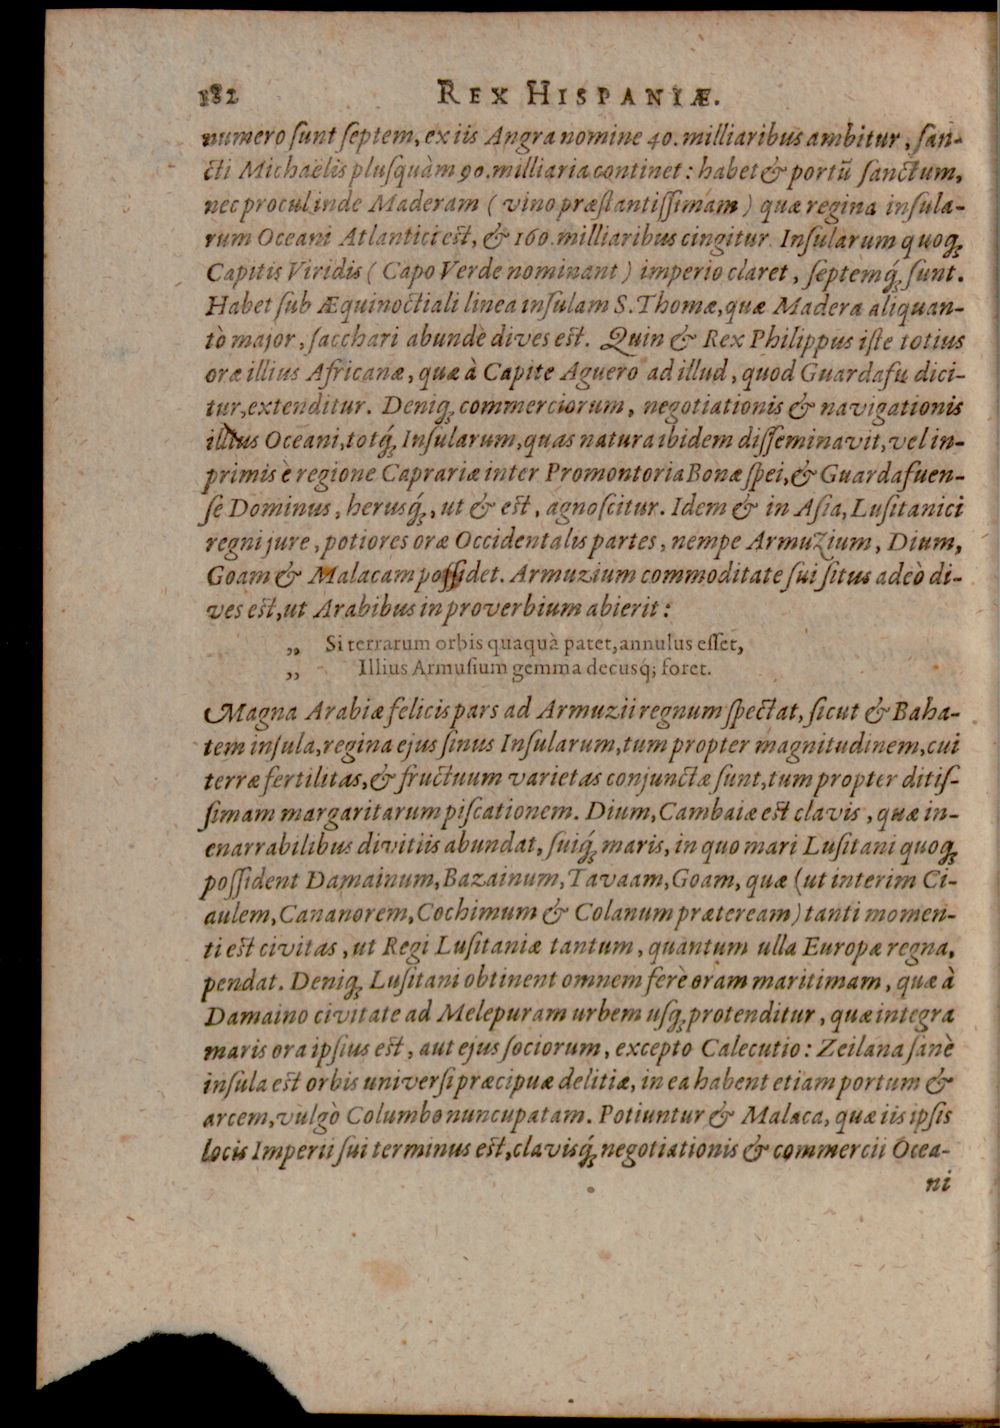 182 REX HISPANIÆ.
numero ſunt ſeptem, ex iis Angra nomine 40. milliaribus ambitur, ſan-
cti Michaëlis pluſquàm 90. milliaria continet: habet & portũ ſanctum,
nec procul inde Maderam ( vino præſtantiſſimam ) quæ regina inſula-
rum Oceani Atlantici est, & 160. milliaribus cingitur. Inſularum quoq;
Capitis Viridis ( Capo Verde nominant ) imperio claret, ſeptemq́; ſunt.
Habet ſub Æquinoctiali linea inſulam S. Thomæ, quæ Madera aliquan-
tò major, ſacchari abundè dives est. Quin & Rex Philippus iſte totius
oræ illius Africanæ, quæ à Capite Aguero ad illud, quod Guardafu dici-
tur, extenditur. Deniq; commerciorum, negotiationis & navigationis
illius Oceani, totq́; Inſularum, quas natura ibidem diſſeminavit, vel in-
primis è regione Caprariæ inter Promontoria Bonæ ſpei, & Guardafuen-
ſe Dominus, herusq́;, ut & est, agnoſcitur. Idem & in Aſia, Luſitanici
regni jure, potiores oræ Occidentalis partes, nempe Armuzium, Dium,
Goam & Malacam poſſidet. Armuzium commoditate ſui ſitus adeò di-
ves est, ut Arabibus in proverbium abierit:
„ Si terrarum orbis quaquà patet, annulus eſſet,
„ Illius Armuſium gemma decusq́; foret.
Magna Arabiæ felicis pars ad Armuzii regnum ſpectat, ſicut & Baha-
tem inſula, regina ejus ſinus Inſularum, tum propter magnitudinem, cui
terræ fertilitas, & fructuum varietas conjunctæ ſunt, tum propter ditiſ-
ſimam margaritarum piſcationem. Dium, Cambaiæ est clavis, quæ in-
enarrabilibus divitiis abundat, ſuiq́; maris, in quo mari Luſitani quoq;
poſſident Damainum, Bazainum, Tavaam, Goam, quæ (ut interim Ci-
aulem, Cananorem, Cochimum & Colanum præteream) tanti momen-
ti est civitas, ut Regi Luſitaniæ tantum, quantum ulla Europæ regna,
pendat. Deniq; Luſitani obtinent omnem ferè oram maritimam, quæ à
Damaino civitate ad Melepuram urbem uſq; protenditur, quæ integra
maris ora ipſius est, aut ejus ſociorum, excepto Calecutio: Zeilana ſanè
inſula est orbis univerſi præcipuæ delitiæ, in ea habent etiam portum &
arcem, vulgò Columbo nuncupatam. Potiuntur & Malaca, quæ iis ipſis
locis Imperii ſui terminus est, clavisq́; negotiationis & commercii Ocea-
ni